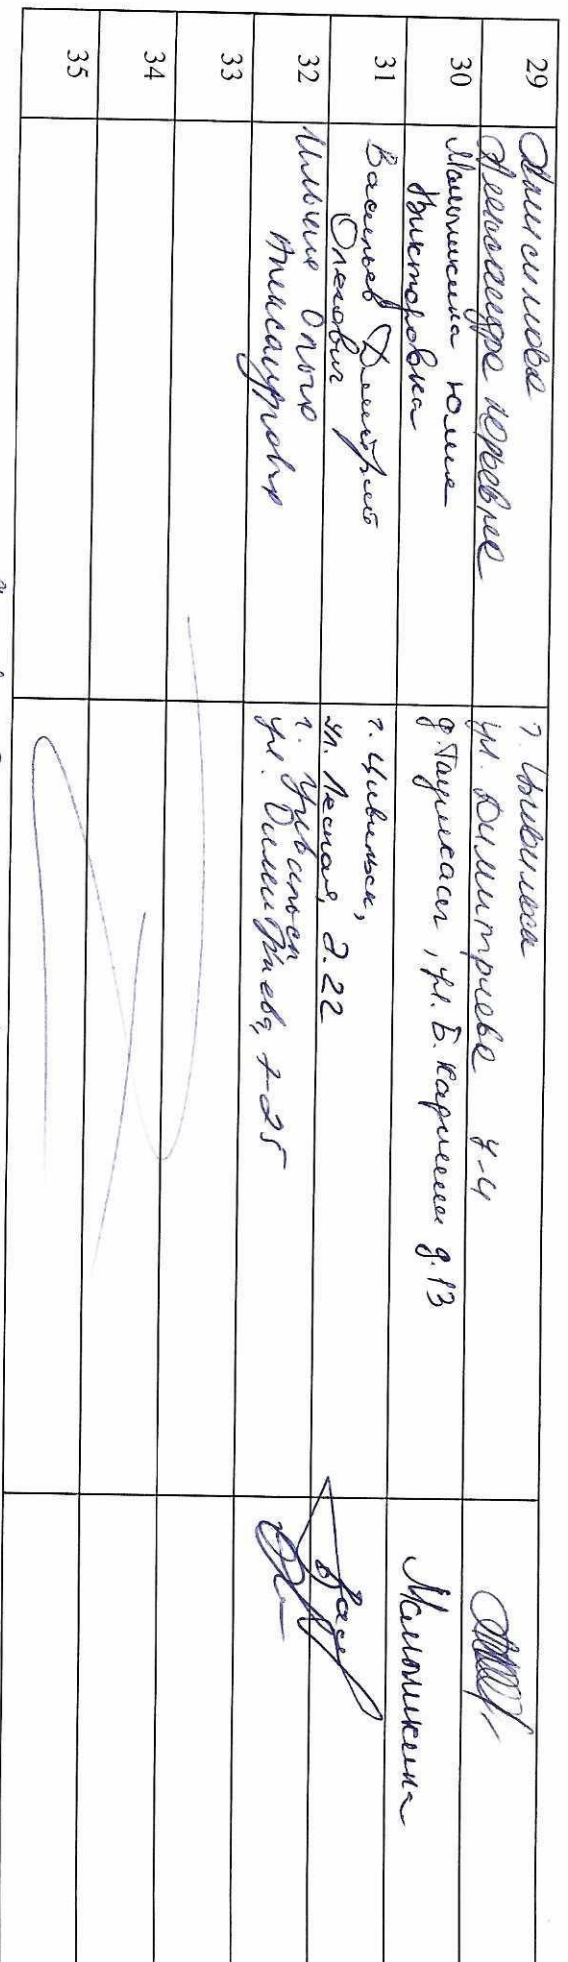 29 Анисимова
Александра Юрьевна
г. Цивильск
ул. Димитриева 7-4
30 Малышкина Юлия
Викторовна
д. Таушкасы, ул. Б. Кариши д. 13
Малышкина
31 Васильев Дмитрий
Олегович
г. Цивильск,
ул. Лесная, д. 22
Вас
32 Ильина Ольга
Александровна
г. Цивильск
ул. Димитриева, 7-25
33
34
35